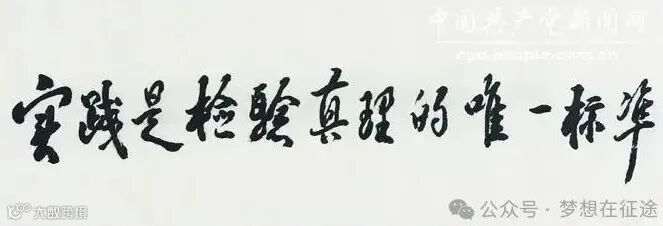 中国共产党新闻网
cpc.people.com.cn
实践是检验真理的唯一标准
大数跨境
公众号·梦想在征途